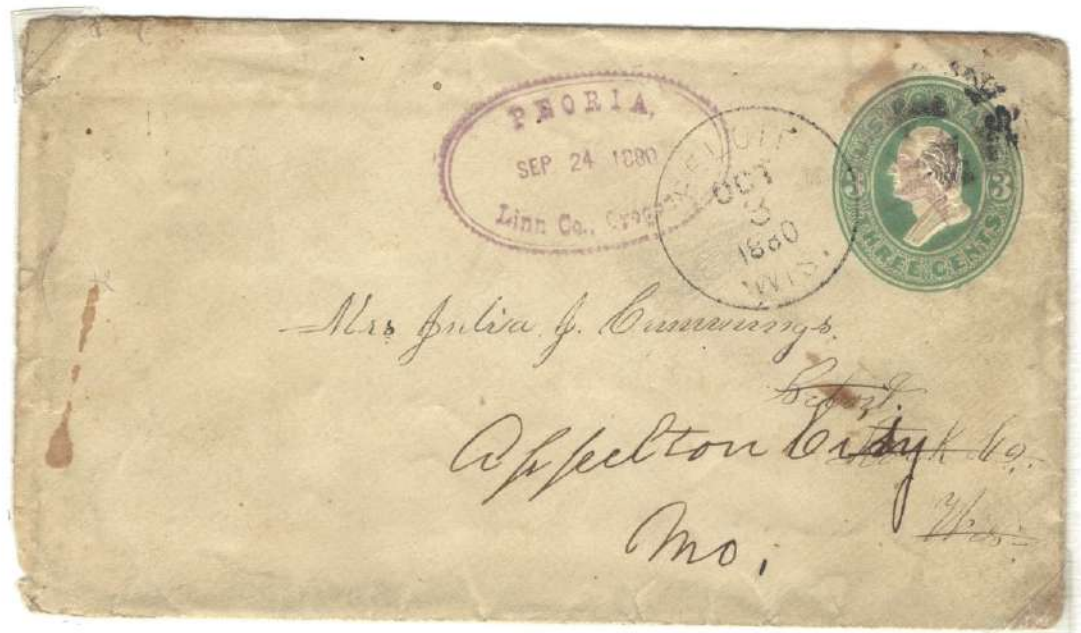 PEORIA,
SEP 24 1880
Linn Co., Oregon
BELOIT
OCT
3
1880
WIS.
U.S. POSTAGE
3 3
THREE CENTS
Mrs Julia J. Cummings.
Beloit.
Appelton City
Rock Co.
Wis
Mo.